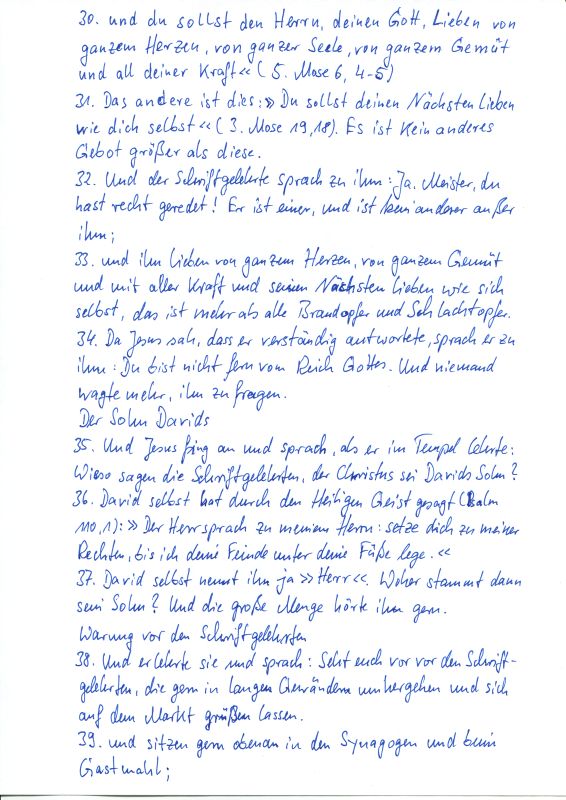 30. und du sollst den Herrn, deinen Gott, lieben von
ganzem Herzen, von ganzer Seele, von ganzem Gemüt
und all deiner Kraft« (5. Mose 6, 4-5)
31. Das andere ist dies: »Du sollst deinen Nächsten lieben
wie dich selbst« (3. Mose 19,18). Es ist kein anderes
Gebot größer als diese.
32. Und der Schriftgelehrte sprach zu ihm: Ja. Meister, du
hast recht geredet! Er ist einer, und ist kein anderer außer
ihm;
33. und ihn lieben von ganzem Herzen, von ganzem Gemüt
und mit aller Kraft und seinen Nächsten lieben wie sich
selbst, das ist mehr als alle Brandopfer und Schlachtopfer.
34. Da Jesus sah, dass er verständig antwortete, sprach er zu
ihm: Du bist nicht fern vom Reich Gottes. Und niemand
wagte mehr, ihn zu fragen.
Der Sohn Davids
35. Und Jesus fing an und sprach, als er im Tempel lehrte:
Wieso sagen die Schriftgelehrten, der Christus sei Davids Sohn?
36. David selbst hat durch den Heiligen Geist gesagt (Psalm
110,1): »Der Herr sprach zu meinem Herrn: setze dich zu meiner
Rechten, bis ich deine Feinde unter deine Füße lege.«
37. David selbst nennt ihn ja »Herr«. Woher stammt dann
sein Sohn? Und die große Menge hörte ihn gern.
Warnung vor den Schriftgelehrten
38. Und er lehrte sie und sprach: Seht euch vor vor den Schrift-
gelehrten, die gern in langen Gewändern umhergehen und sich
auf dem Markt grüßen lassen.
39. und sitzen gern obenan in den Synagogen und beim
Gastmahl;